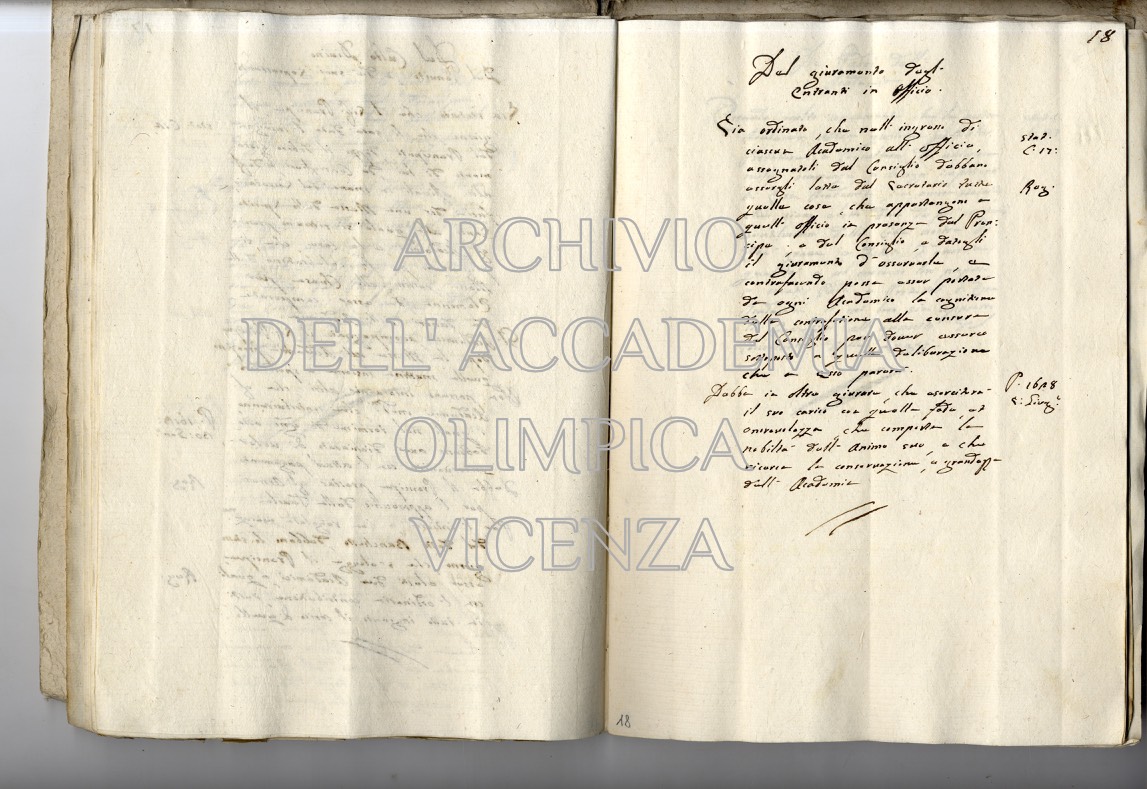 18
Del giuramento degl'
Entranti in officio.
Sia ordinato, che nell' ingresso di
ciascun Academico all' officio,
assegnatoli dal Consiglio debbano
essergli lette dal Secretario tutte
quelle cose, che appartengono a
quell' officio in presenza del Pren-
cipe, e del Consiglio, e datogli
il giuramento d'osservarle, e
contrafacendo possa esser portata
da ogni Academico la cognitione
della contrafatione alla censura
del Consiglio per dover essere
sottoposto a quella deliberatione
che a esso parerà.
Debba in oltre giurare, che eserciterà
il suo carico con quella fede, et
che comporta la
nobiltà dell' animo suo, e che
ricerca la conservatione, e grandezza
dell' Academia
Stat.
C. 17:
Reg.
P. 1628
18
ARCHIVIO
DELL'ACCADEMIA
OLIMPICA
VICENZA